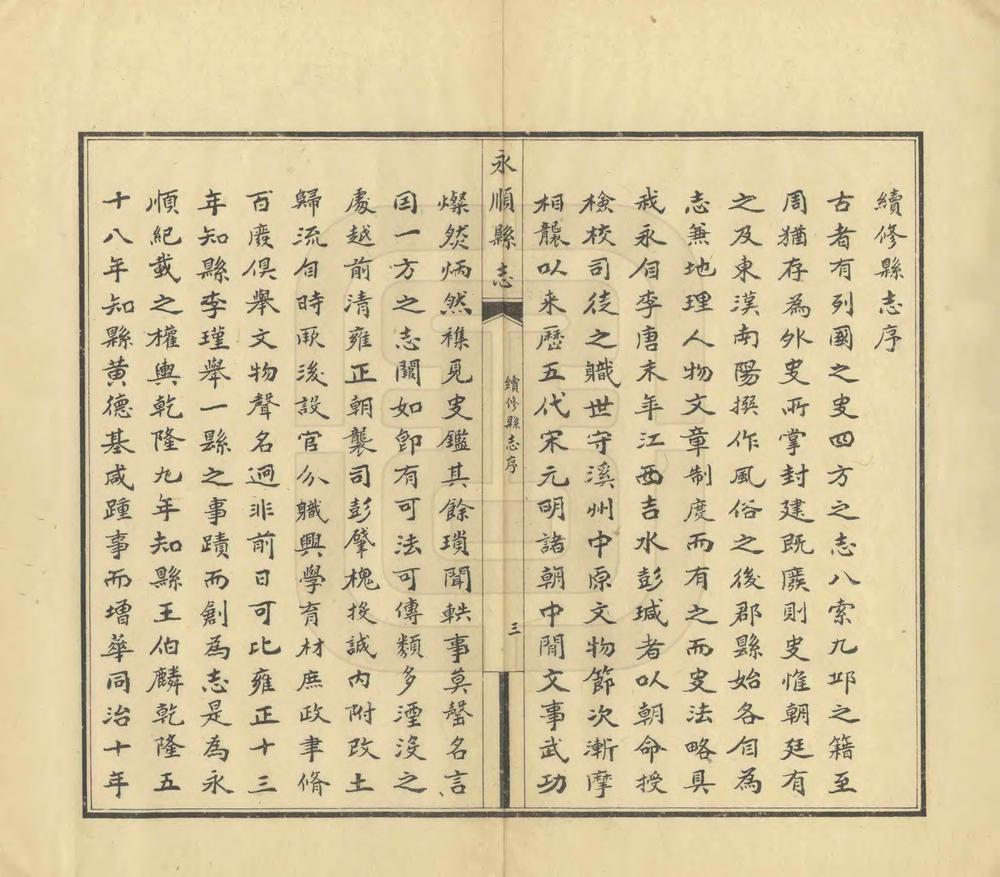 續修縣志序
古者有列國之史四方之志八索九邱之籍至
周猶存為外史所掌封建既廢則史惟朝廷有
之及東漢南陽撰作風俗之後郡縣始各自為
志兼地理人物文章制度而有之而史法略具
我永自李唐末年江西吉水彭瑊者以朝命授
檢校司徒之職世守溪州中原文物節次漸摩
相襲以来歷五代宋元明諸朝中間文事武功
永順縣志
續修縣志序
三
燦然炳然襍見史鑑其餘瑣聞軼事莫罄名言
囙一方之志闕如卽有可法可傳類多湮沒之
處越前清雍正朝襲司彭肇槐投誠内附改土
歸流自時厥後設官分職興學育材庶政聿脩
百廢俱舉文物聲名迥非前日可比雍正十三
年知縣李瑾舉一縣之事蹟而創為志是為永
順紀載之權輿乾隆九年知縣王伯麟乾隆五
十八年知縣黃德基咸踵事而增華同治十年